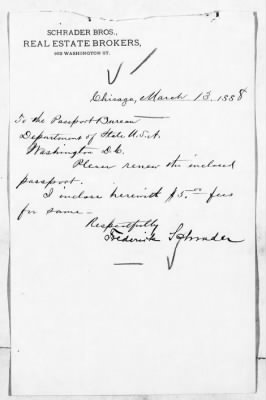 SCHRADER BROS.,
REAL ESTATE BROKERS,
WASHINGTON ST.
Chicago, March 13, 1888
To the Passport Bureau
Department of State U.S.A.
Washington D.C.
Please renew the inclosed
passport.
I inclose herewith $5.00 fees
for same —
Respectfully
Frederick Schrader